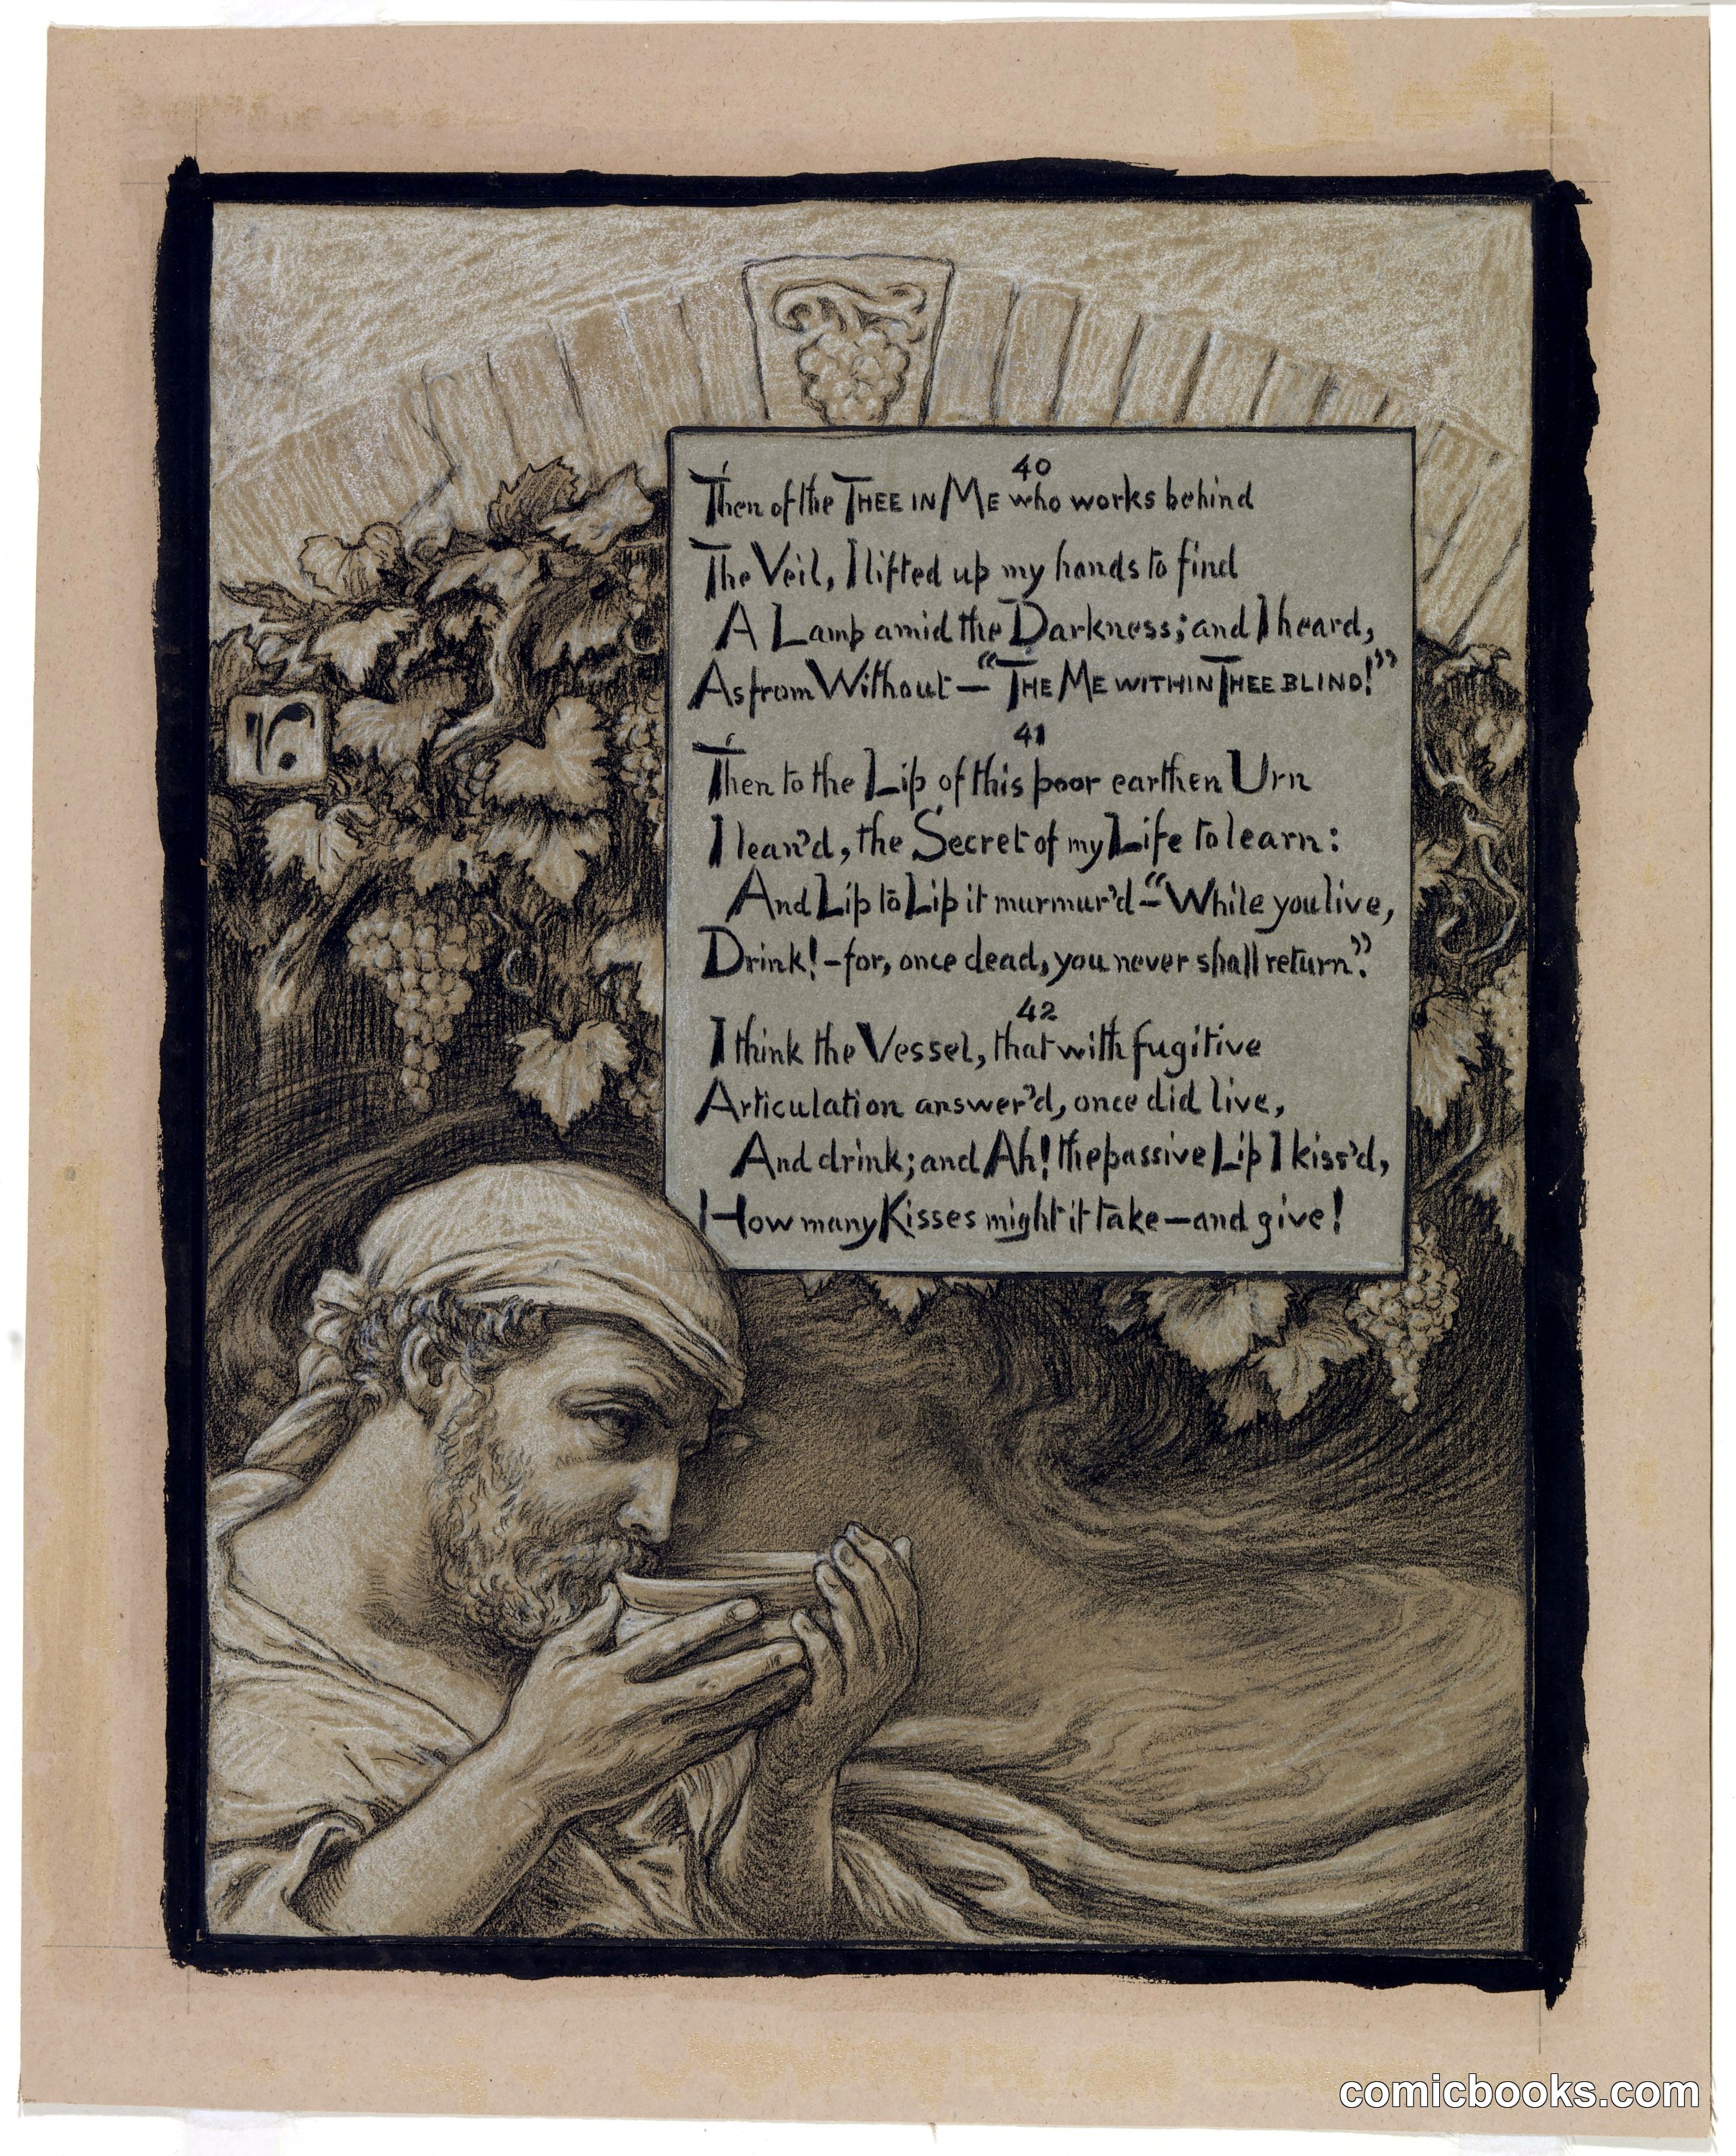 40
Then of the THEE IN ME who works behind
The Veil, I lifted up my hands to find
A Lamp amid the Darkness; and I heard,
As from Without — "THE ME WITHIN THEE BLIND!"
41
Then to the Lip of this poor earthen Urn
I lean'd, the Secret of my Life to learn:
And Lip to Lip it murmur'd — "While you live,
Drink! — for, once dead, you never shall return."
42
I think the Vessel, that with fugitive
Articulation answer'd, once did live,
And drink; and Ah! the passive Lip I kiss'd,
How many Kisses might it take — and give!
comicbooks.com